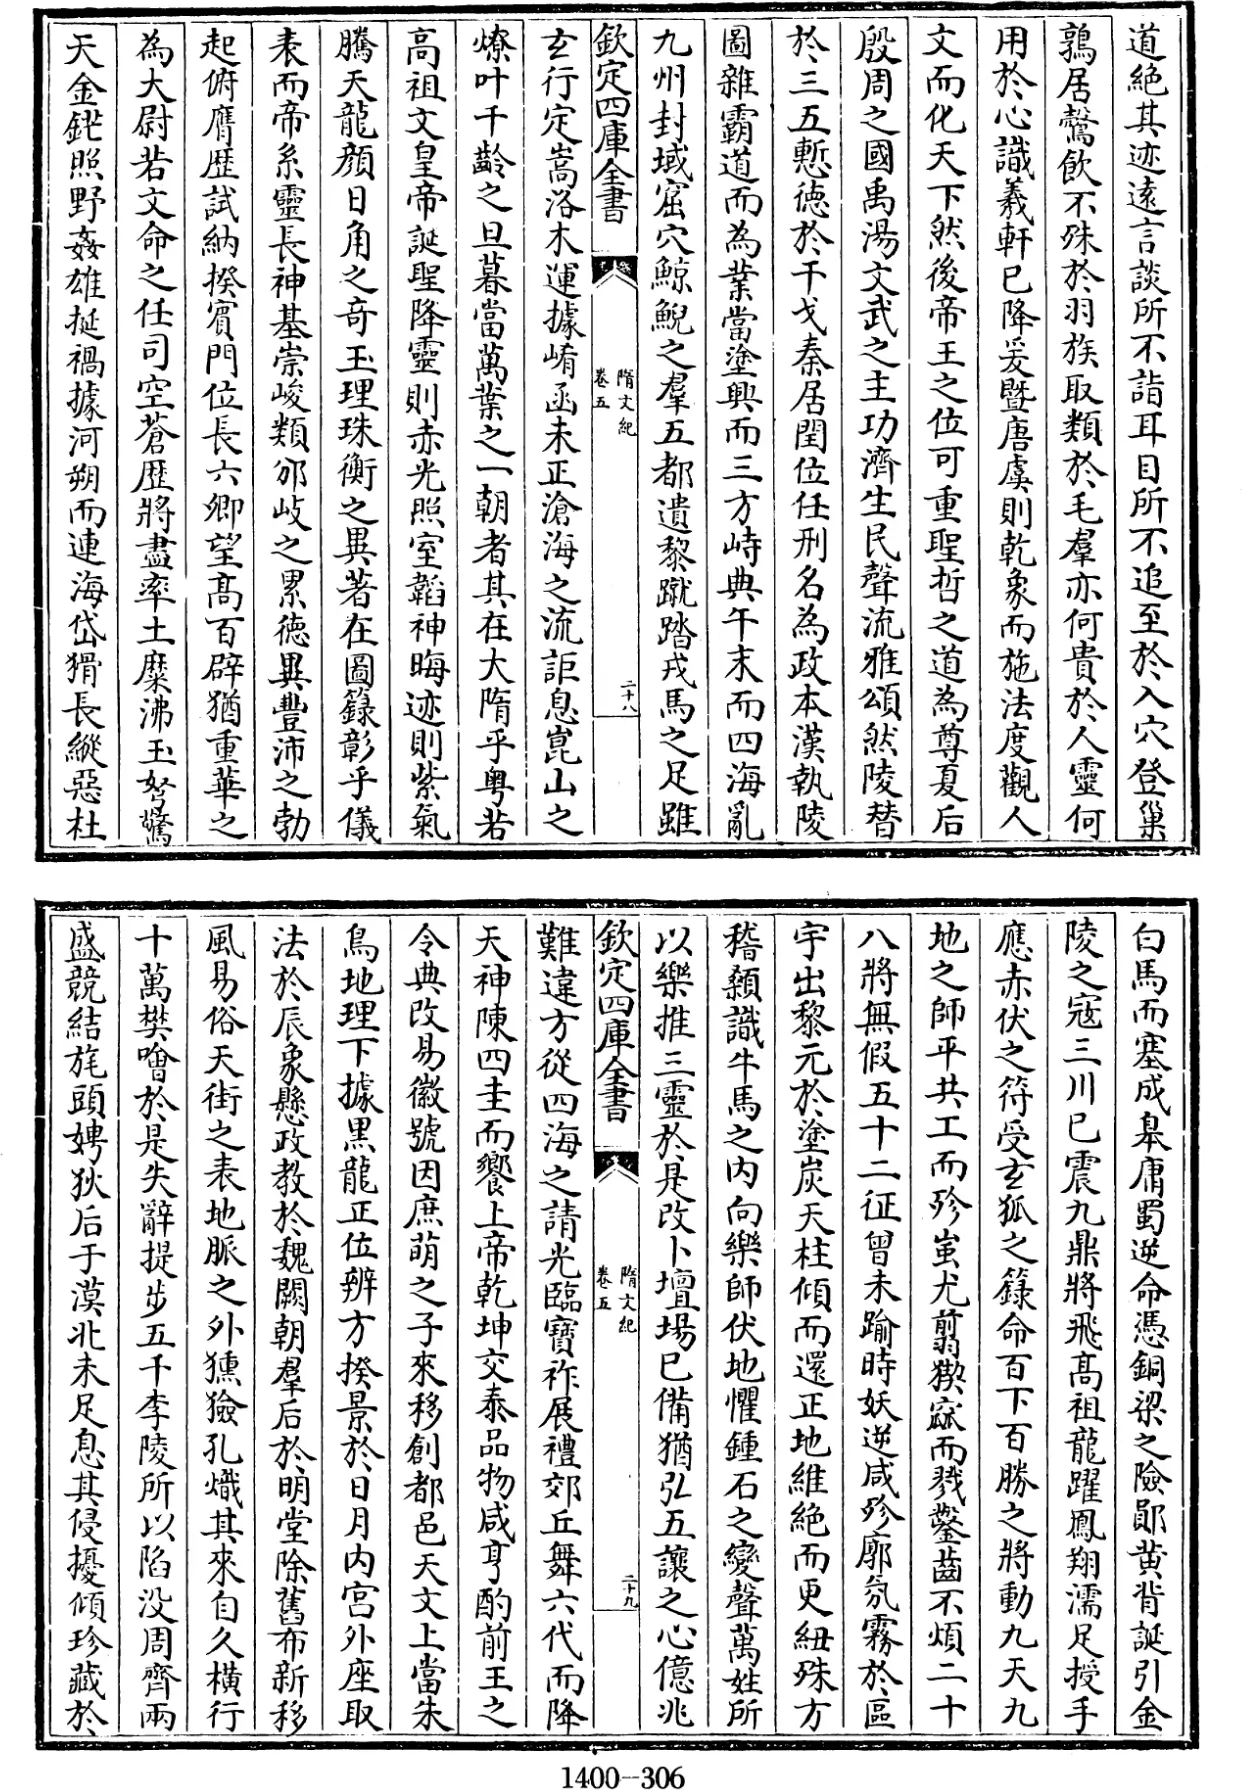 道絶其迹逺言談所不詣耳目所不追至於入穴登巢
鶉居鷇飲不殊於羽族取類於毛羣亦何貴於人靈何
用於心識羲軒已降爰暨唐虞則乾象而施法度觀人
文而化天下然後帝王之位可重聖哲之道為尊夏后
殷周之國禹湯文武之主功濟生民聲流雅頌然陵替
於三五慙徳於干戈秦居閏位任刑名為政本漢執陵
圖雜霸道而為業當塗興而三方峙典午末而四海亂
九州封域窟穴鯨鯢之羣五都遺黎蹴踏戎馬之足雖
欽定四庫全書
隋文紀
卷五
二十八
玄行定嵩洛木運據崤函未正滄海之流詎息崑山之
燎叶千齡之旦暮當萬葉之一朝者其在大隋乎粤若
高祖文皇帝誕聖降靈則赤光照室韜神晦迹則紫氣
騰天龍顔日角之竒玉理珠衡之異著在圖籙彰乎儀
表而帝系靈長神基崇峻類邠岐之累徳異豐沛之勃
起俯膺歴試納揆賓門位長六卿望髙百辟猶重華之
為大尉若文命之任司空蒼歴將盡率土糜沸玉弩驚
天金鋩照野姦雄挻禍據河朔而連海岱猾長縱惡杜
白馬而塞成臯庸蜀逆命憑銅梁之險鄖黄背誕引金
陵之寇三川已震九鼎將飛髙祖龍躍鳳翔濡足授手
應赤伏之符受玄狐之籙命百下百勝之將動九天九
地之師平共工而殄蚩尤翦猰窳而戮鑿齒不煩二十
八將無假五十二征曾未踰時妖逆咸殄廓氛霧於區
宇出黎元於塗炭天柱傾而還正地維絶而更紐殊方
稽顙識牛馬之内向樂師伏地懼鍾石之變聲萬姓所
以樂推三靈於是改卜壇場已備猶弘五讓之心億兆
欽定四庫全書
隋文紀
卷五
二十九
難違方從四海之請光臨寶祚展禮郊丘舞六代而降
天神陳四圭而饗上帝乾坤交泰品物咸亨酌前王之
令典改易徽號因庶萌之子來移創都邑天文上當朱
鳥地理下據黒龍正位辨方揆景於日月内宫外座取
法於辰象懸政教於魏闕朝羣后於明堂除舊布新移
風易俗天街之表地脈之外獯獫孔熾其來自久横行
十萬樊噲於是失辭提步五千李陵所以陷没周齊兩
盛競結旄頭娉狄后于漠北未足息其侵擾傾珍藏於
1400-306